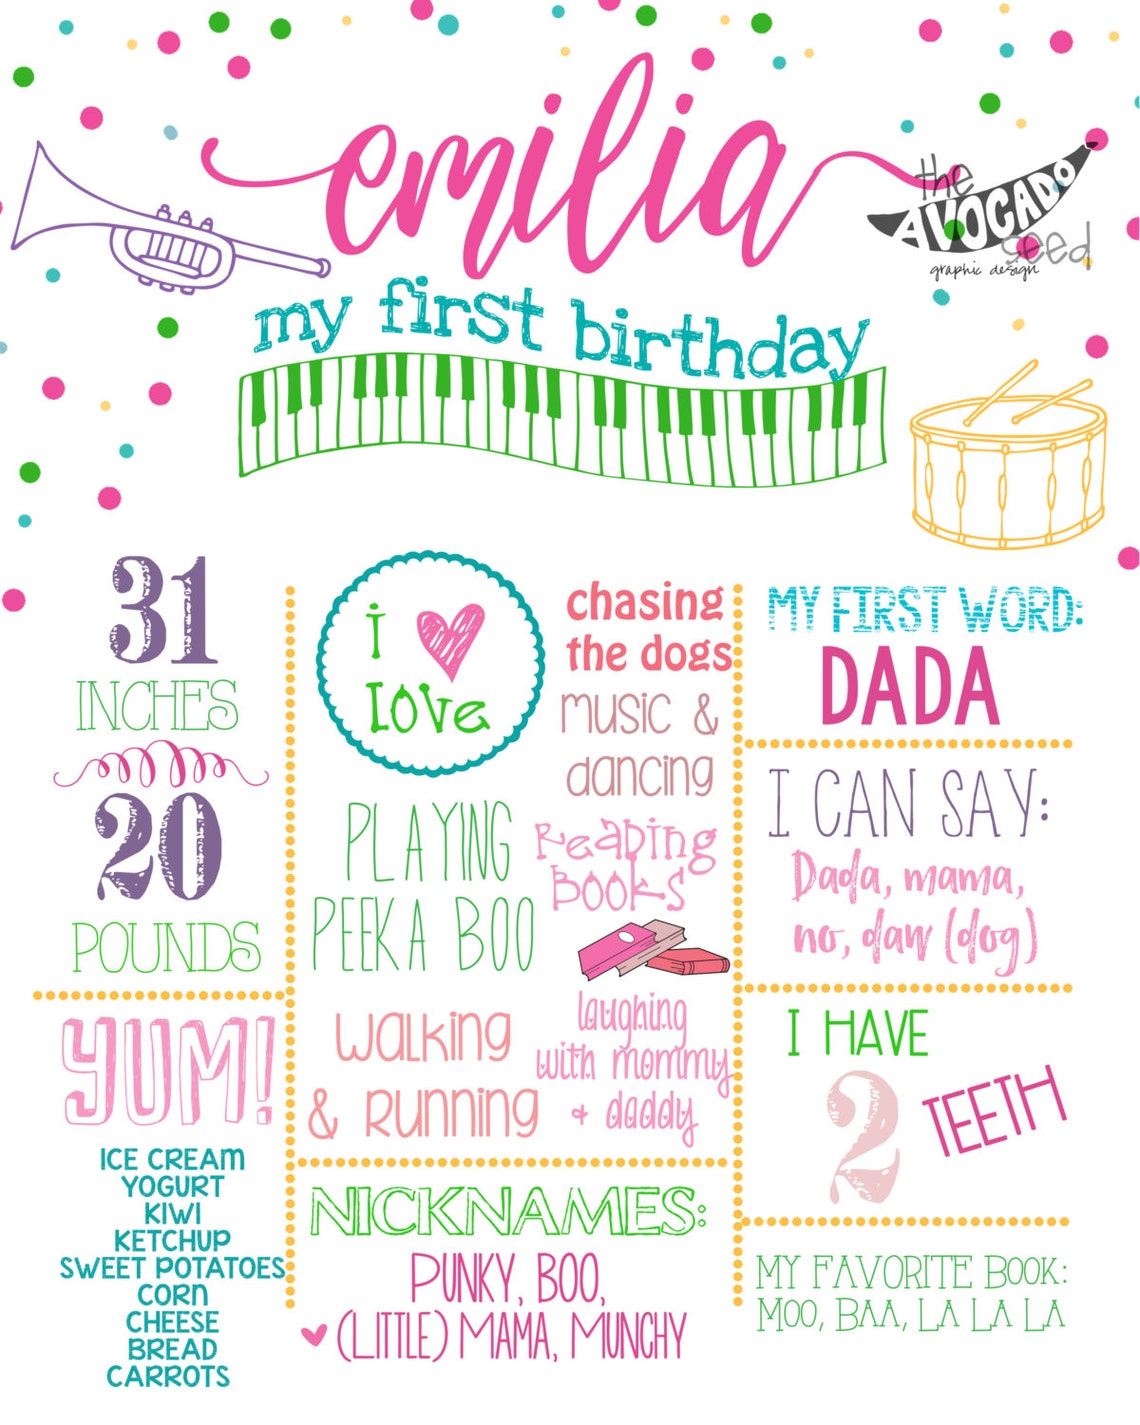 emilia
the
AVOCADO
seed
graphic design
my first birthday
31
INCHES
20
POUNDS
YUM!
ICE CREAM
YOGURT
KIWI
KETCHUP
SWEET POTATOES
CORN
CHEESE
BREAD
CARROTS
i
love
PLAYING
PEEKA BOO
walking
& running
chasing
the dogs
music &
dancing
Reading
Books
laughing
with mommy
+ daddy
NICKNAMES:
PUNKY, BOO,
(LITTLE) MAMA, MUNCHY
MY FIRST WORD:
DADA
I CAN SAY:
Dada, mama,
no, daw (dog)
I HAVE
2
TEETH
MY FAVORITE BOOK:
MOO, BAA, LA LA LA